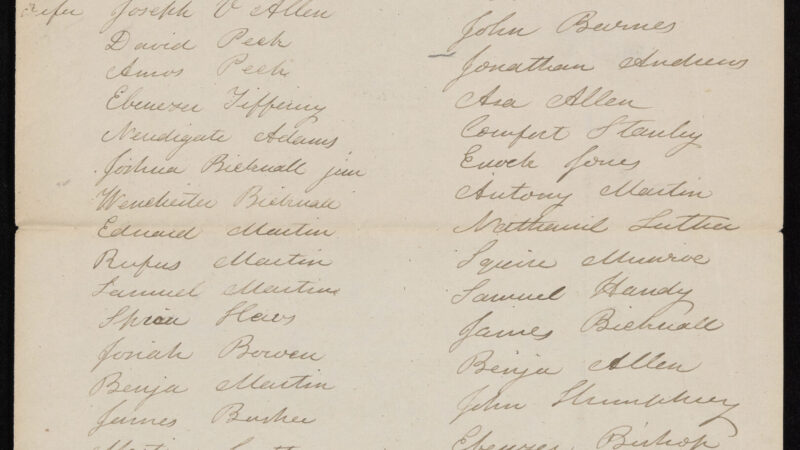 fifer Joseph V Allen
David Peck
Amos Peck
Ebenezer Tiffeny
Nendigate Adams
Joshua Bicknall jun
Wenchester Bicknall
Edward Martin
Rufus Martin
Samuel Martin
Josiah Bowen
Benja Martin
James Bushee
John Barnes
Jonathan Andrews
Asa Allen
Comfort Stanley
Enoch Jones
Antony Martin
Nathaniel Luther
Squire Munroe
Samuel Handy
James Bicknall
Benja Allen
John Humphrey
Ebenezer Bishop